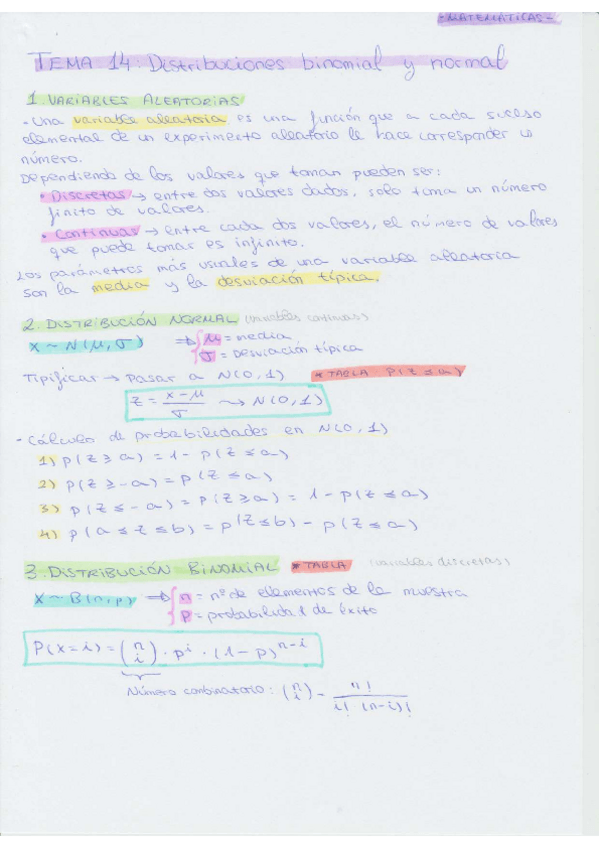 - MATEMÁTICAS -
TEMA 14: Distribuciones binomial y normal
1. VARIABLES ALEATORIAS
- Una variable aleatoria es una función que a cada suceso
elemental de un experimento aleatorio le hace corresponder un
número.
Dependiendo de los valores que toman pueden ser:
* Discretas → entre dos valores dados, solo toma un número
finito de valores.
* Continuas → entre cada dos valores, el número de valores
que puede tomar es infinito.
Los parámetros más usuales de una variable aleatoria
son la media y la desviación típica.
2. DISTRIBUCIÓN NORMAL (variables continuas)
X ~ N(μ, σ) ⇒ { μ = media
σ = Desviación típica
Tipificar → Pasar a N(0, 1) * TABLA P(Z ≤ a)
Z = (x - μ)/σ ⇝ N(0, 1)
- Cálculo de probabilidades en N(0, 1)
1) P(Z ≥ a) = 1 - P(Z ≤ a)
2) P(Z ≥ -a) = P(Z ≤ a)
3) P(Z ≤ -a) = P(Z ≥ a) = 1 - P(Z ≤ a)
4) P(a ≤ Z ≤ b) = P(Z ≤ b) - P(Z ≤ a)
3. DISTRIBUCIÓN BINOMIAL * TABLA (variables discretas)
X ~ B(n, p) ⇒ { n = nº de elementos de la muestra
p = probabilidad de éxito
P(X = i) = (n i) · pⁱ · (1 - p)ⁿ⁻ⁱ
Número combinatorio: (n i) = n! / i! (n-i)!